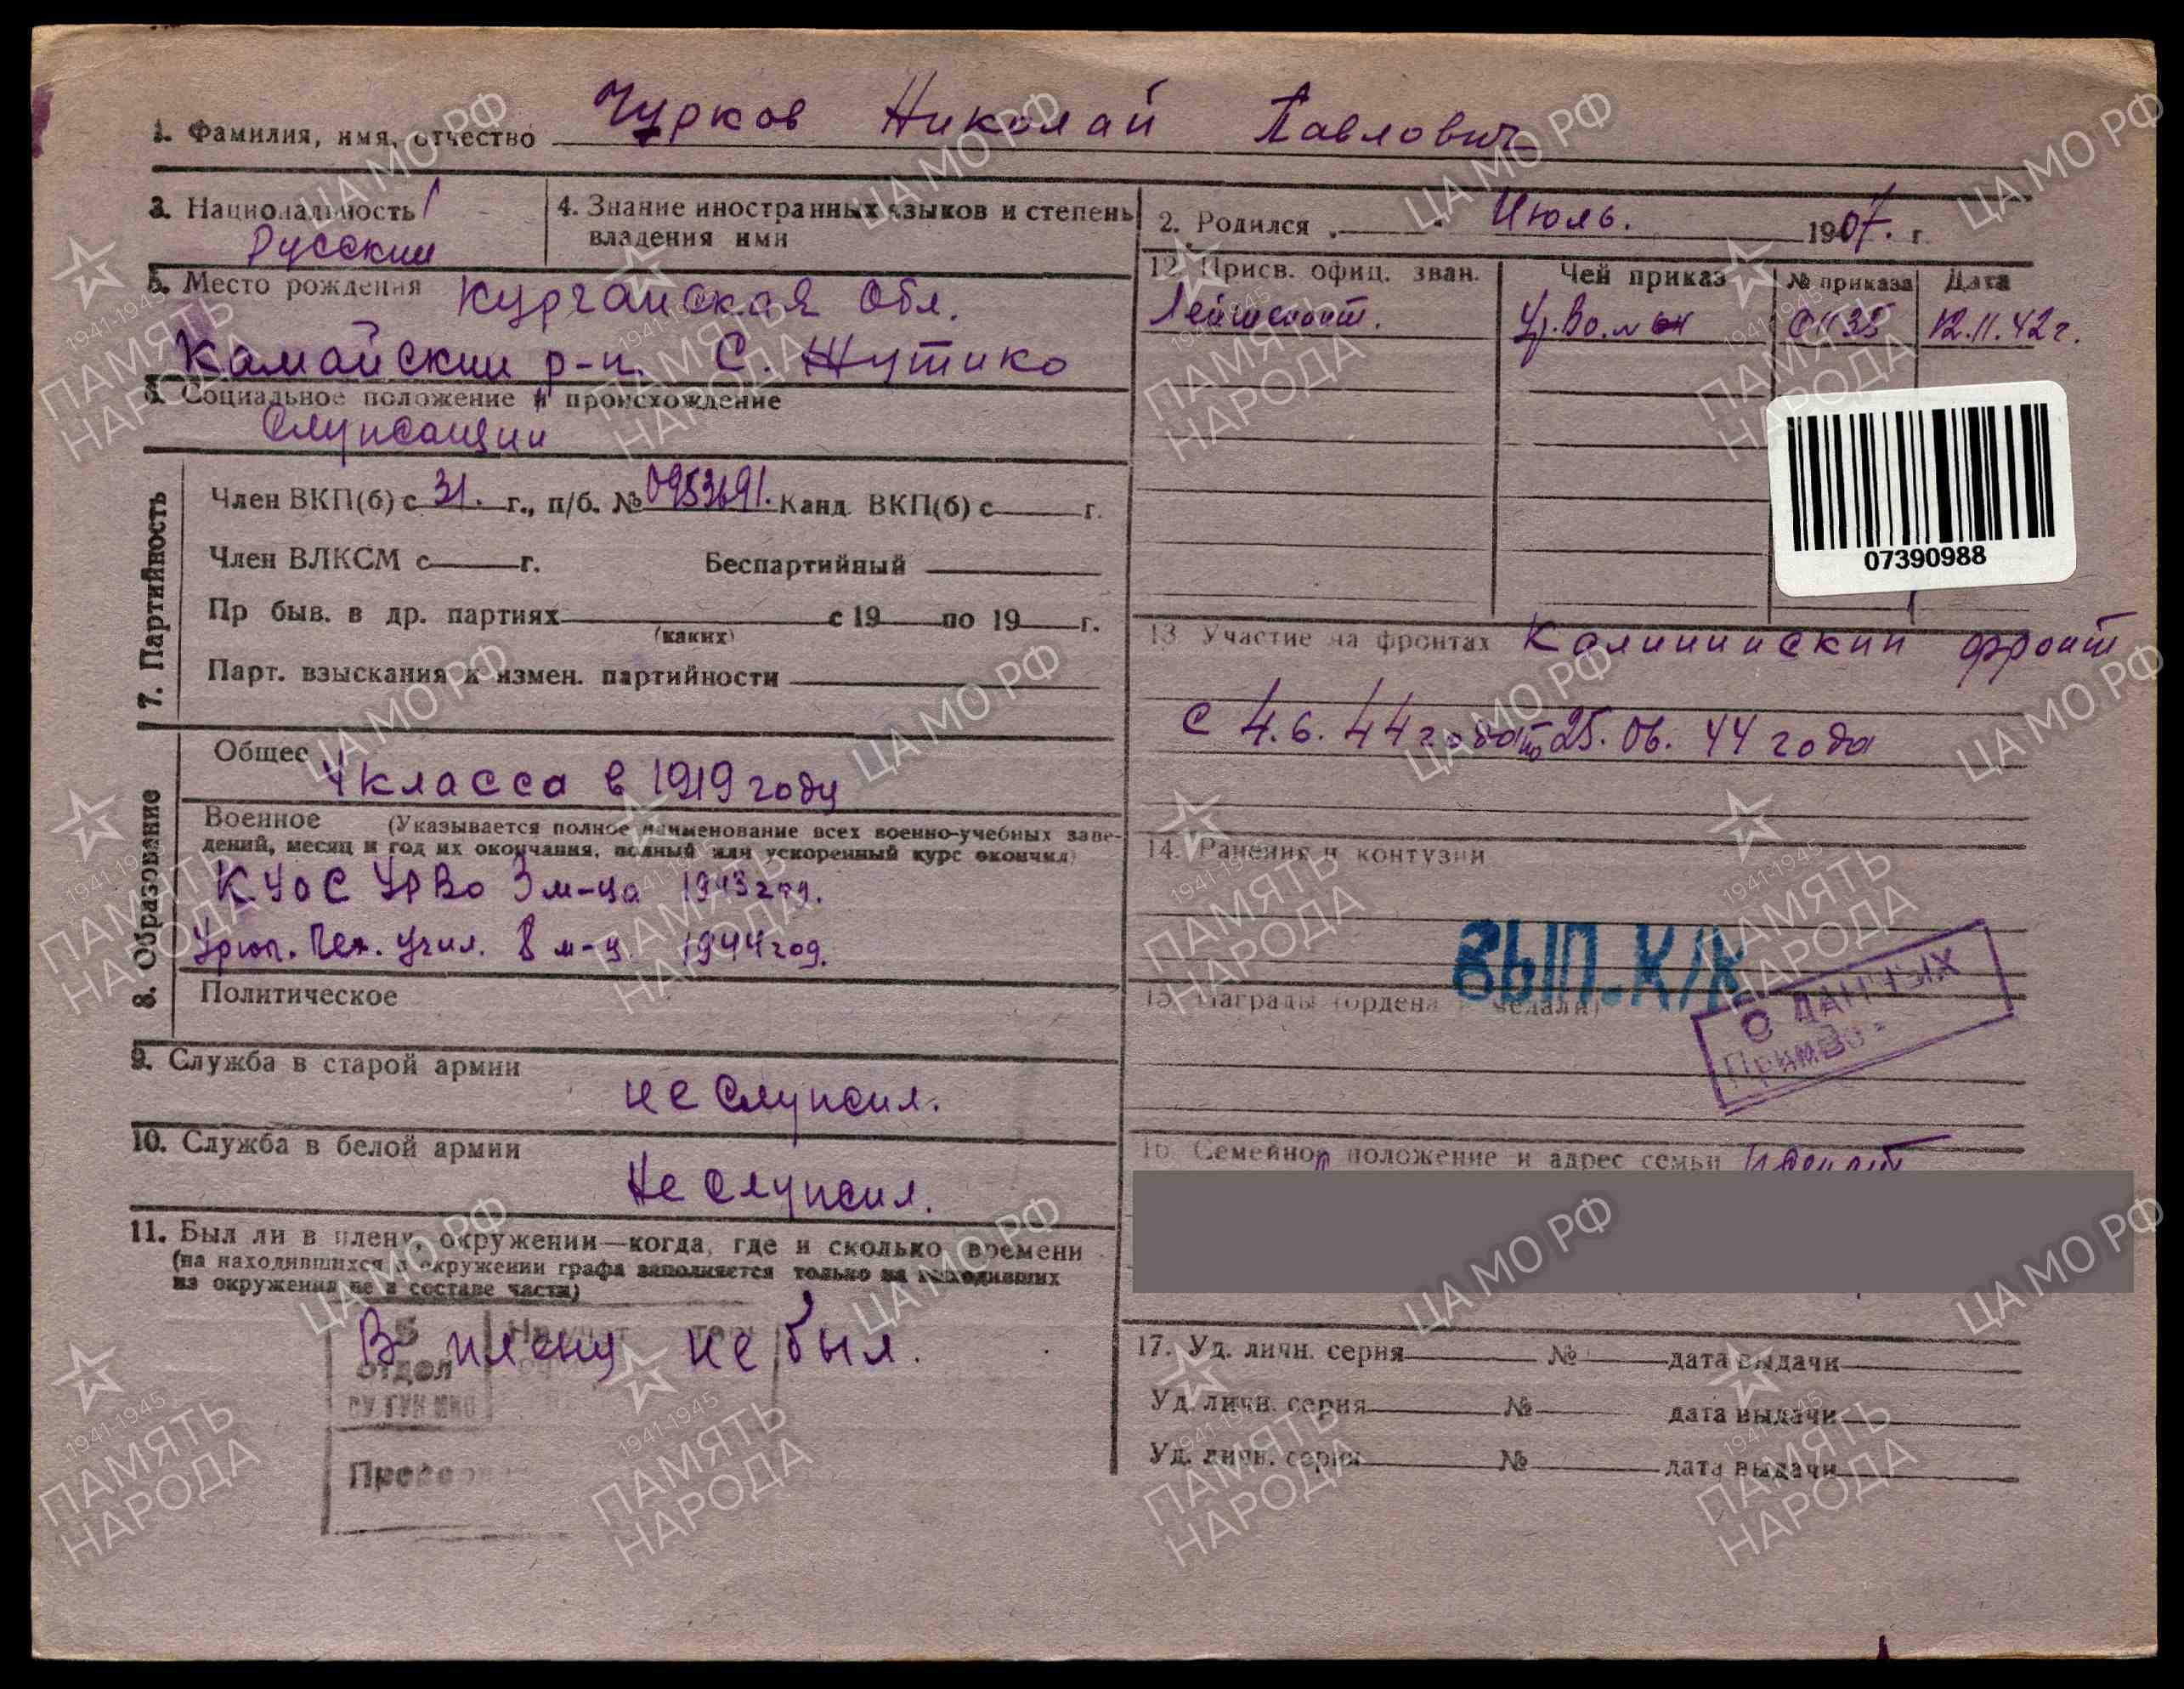 1. Фамилия, имя, отчество Чурков Николай Павлович
3. Национальность Русский
4. Знание иностранных языков и степень
владения ими
2. Родился Июль. 1907. г.
5. Место рождения Курганская Обл.
р-н. С.
6. Социальное положение и происхождение
Служащий
7. Партийность
Член ВКП(б) с 31. г., п/б. № 0953691. Канд. ВКП(б) с г.
Член ВЛКСМ с г. Беспартийный
Пр быв. в др. партиях с 19 по 19 г.
(каких)
Парт. взыскания и измен. партийности
8. Образование
Общее 4 класса в 1919 году
Военное (Указывается полное наименование всех военно-учебных заве-
дений, месяц и год их окончания, полный или ускоренный курс окончил)
КУОС УрВо 3 м-ца 1943 год.
Урюп. Пех. Учил. 8 м-ц. 1944 год.
Политическое
9. Служба в старой армии
не Служил.
10. Служба в белой армии
Не Служил.
11. Был ли в плену, окружении—когда, где и сколько времени
(на находившихся в окружении графа заполняется только на выходивших
из окружения не в составе части)
В плену не был.
5
отдел
12. Присв. офиц. зван. Чей приказ № приказа Дата
Лейтенант. 12.11.42 г.
07390988
13. Участие на фронтах Калининский фронт
С 4.6.44 года по 25.06.44 года
14. Ранения и контузии
ВЫП. К/К
15. Награды (ордена и медали)
О ДАННЫХ
16. Семейное положение и адрес семьи Женат
17. Уд. личн. серия № дата выдачи
Уд. личн. серия № дата выдачи
Уд. личн. серия № дата выдачи
ЦА МО РФ
1941-1945
ПАМЯТЬ
НАРОДА